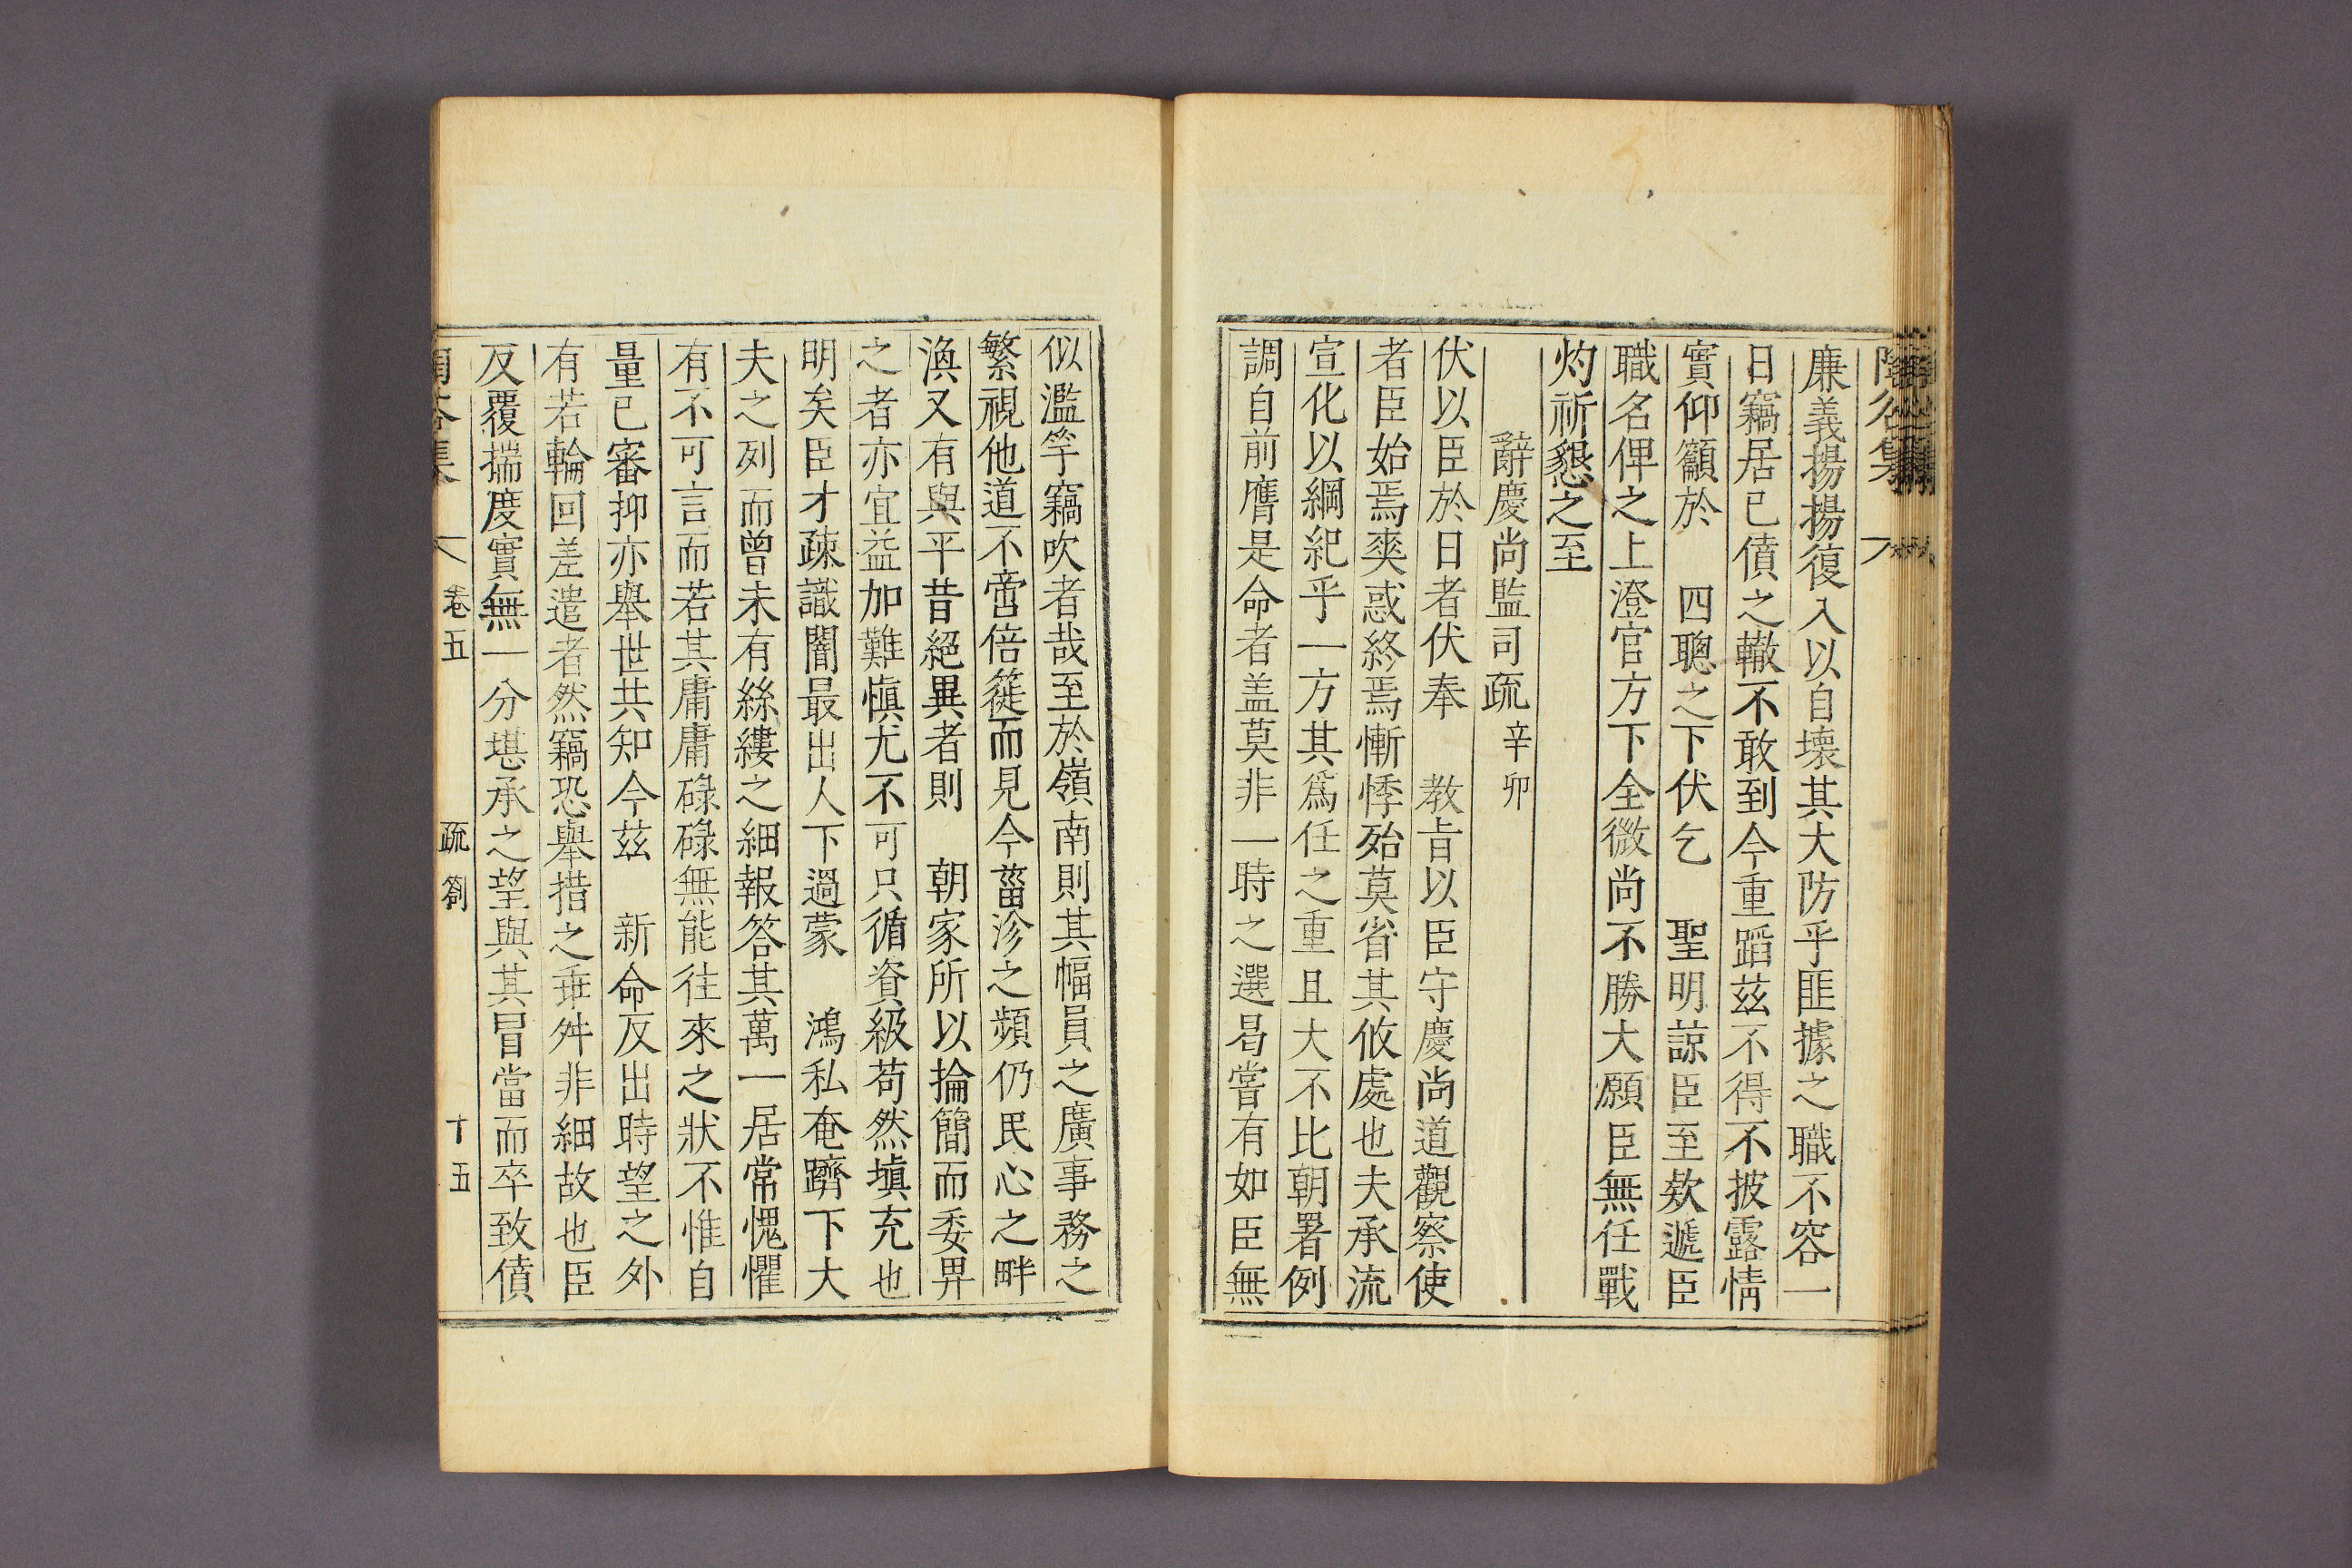 陶谷集
廉義揚揚復入以自壞其大防乎匪據之職不容一
日竊居已僨之轍不敢到今重蹈玆不得不披露情
實仰籲於 四聰之下伏乞 聖明諒臣至欸遞臣
職名俾之上澄官方下全微尚不勝大願臣無任戰
灼祈懇之至
辭慶尚監司疏 辛卯
伏以臣於日者伏奉 敎旨以臣守慶尚道觀察使
者臣始焉爽惑終焉慚悸殆莫省其攸處也夫承流
宣化以綱紀乎一方其爲任之重且大不比朝署例
調自前膺是命者盖莫非一時之選曷嘗有如臣無
似濫竽竊吹者哉至於嶺南則其幅員之廣事務之
繁視他道不啻倍蓰而見今菑沴之頻仍民心之畔
渙又有與平昔絕異者則 朝家所以掄簡而委畀
之者亦宜益加難愼尤不可只循資級苟然塡充也
明矣臣才疎識闇最出人下過蒙 鴻私奄躋下大
夫之列而曾未有絲縷之細報答其萬一居常愧懼
有不可言而若其庸庸碌碌無能往來之狀不惟自
量已審抑亦舉世共知今玆 新命反出時望之外
有若輪回差遣者然竊恐舉措之乖舛非細故也臣
反覆揣度實無一分堪承之望與其冒當而卒致僨
陶谷集 卷五 疏劄 十五